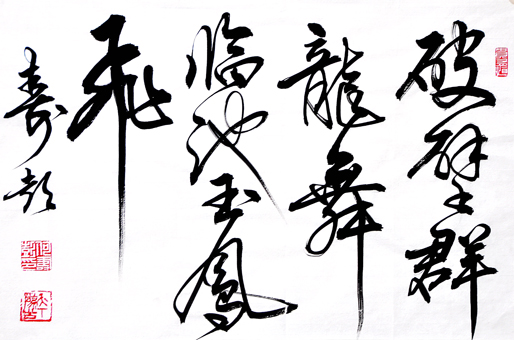 破壁群
龍舞
臨池玉鳳
飛
壽彭